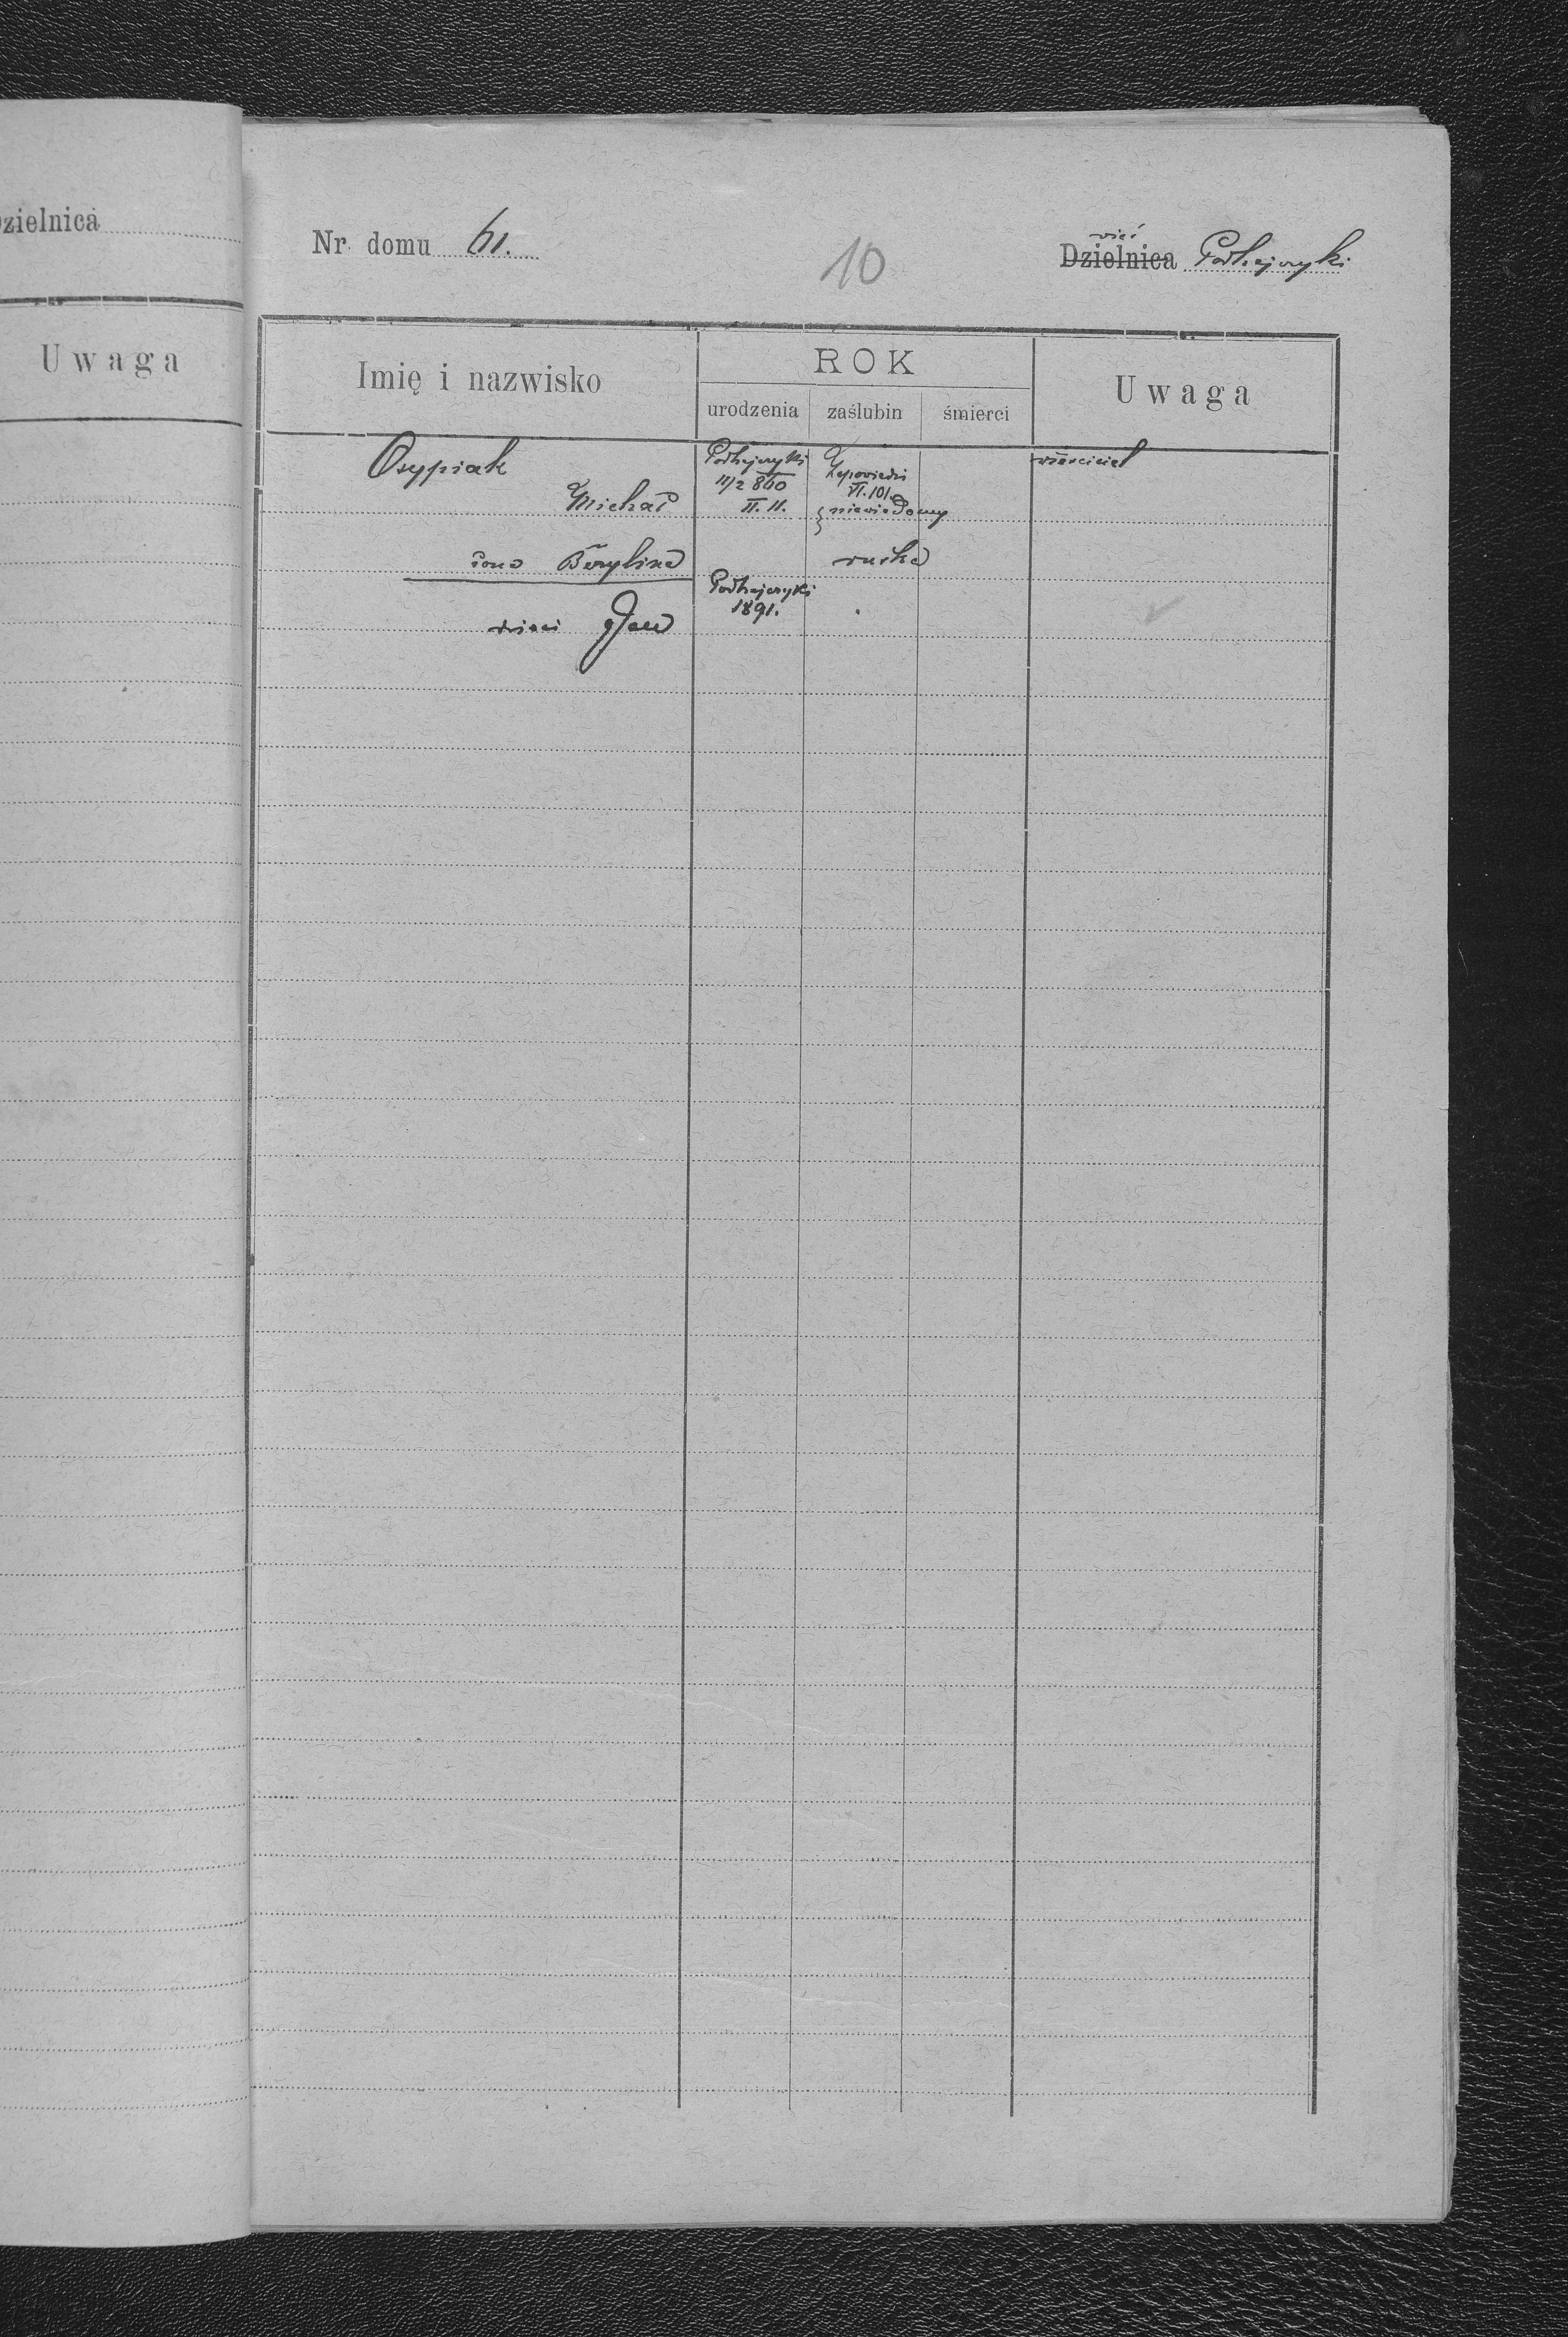 zielnica
Uwaga
Nr domu 61.
10
wieś
Dzielnica Podhajczyki
Imię i nazwisko
ROK
urodzenia zaślubin śmierci
Uwaga
Osypiak Podhajczyki Zapowiedzi właściciel
11/2 860 VI.101.
Michał II. 11. niewiadomy
żona Berylina ruska
Podhajczyki
1891.
dzieci Jan